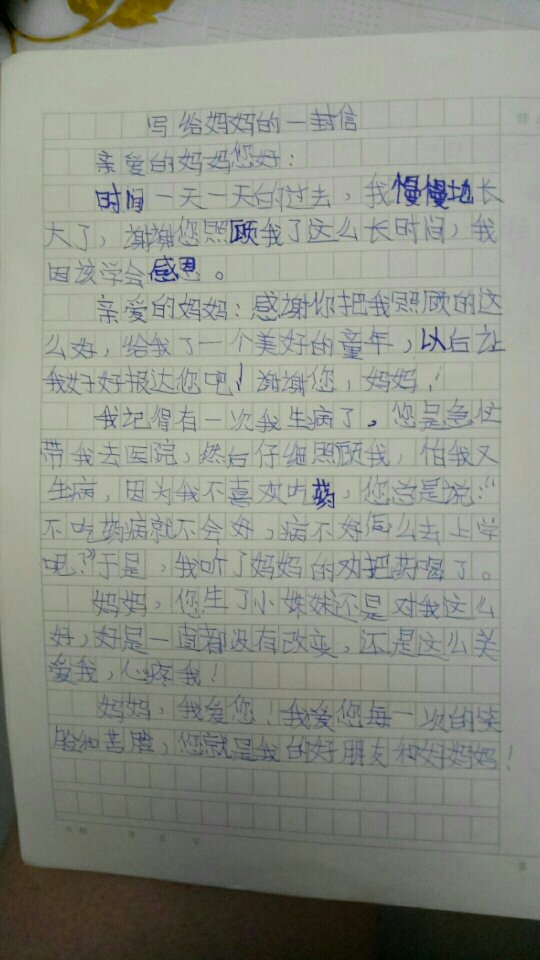 写给妈妈的一封信
亲爱的妈妈您好：
时间一天一天白过去，我慢慢地长
大了，谢谢您照顾我了这么长时间，我
因该学会感恩。
亲爱的妈妈：感谢你把我照顾的这
么好，给我了一个美好的童年，以后让
我好好报达您吧！谢谢您，妈妈！
我记得有一次我生病了。您是急忙
带我去医院，然后仔细照顾我，怕我又
生病，因为我不喜欢吃药，您总是说：“
不吃药病就不会好，病不好怎么去上学
呢？”于是，我听了妈妈的劝把药喝了。
妈妈，您生了小妹妹还是对我这么
好，好是一直都没有改变，还是这么关
爱我，心疼我！
妈妈，我爱您！我爱您每一次的笑
脸和苦，您就是我的好朋友和好妈妈！
年 月 日
第